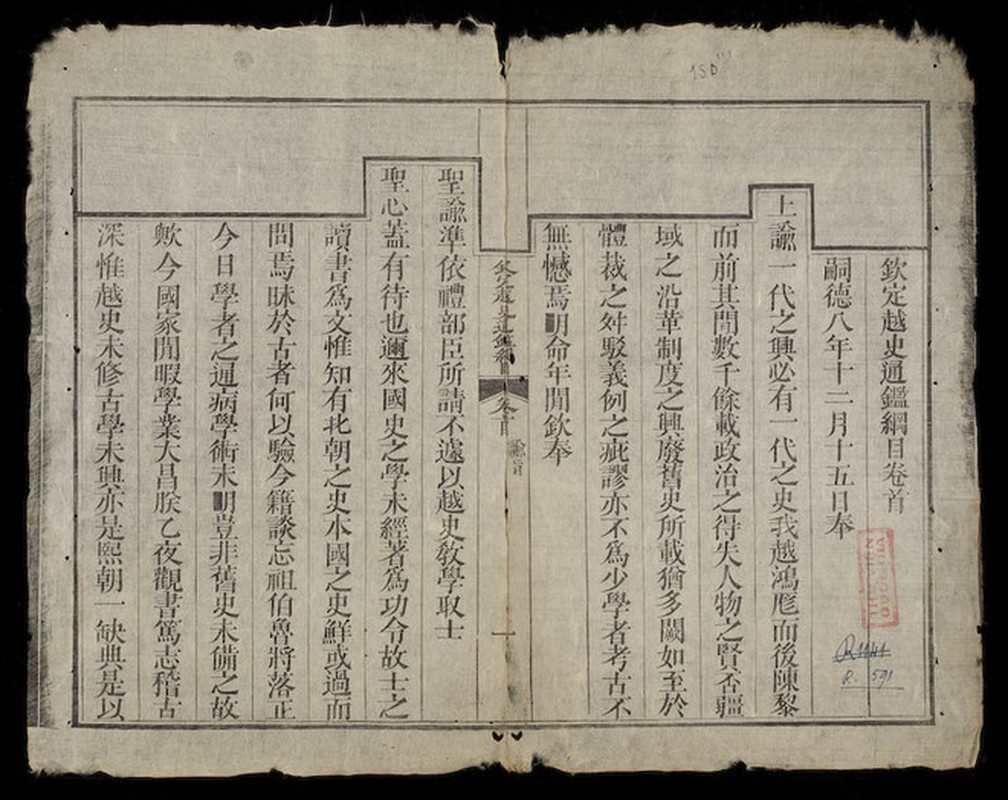 欽定越史通鑑綱目卷首
嗣德八年十二月十五日奉
上諭一代之興必有一代之史我越鴻厖而後陳黎
而前其間數千餘載政治之得失人物之賢否疆
域之沿革制度之興廢舊史所載猶多闕如至於
體裁之舛駁義例之疵謬亦不爲少學者考古不
無憾焉明命年間欽奉
欽定越史通鑑綱目
卷首
諭旨
一
聖諭準依禮部臣所請不遽以越史敎學取士
聖心蓋有待也邇來國史之學未經著爲功令故士之
讀書爲文惟知有北朝之史本國之史鮮或過而
問焉昧於古者何以驗今籍談忘祖伯魯將落正
今日學者之通病學術未明豈非舊史未備之故
歟今國家閒暇學業大昌朕乙夜觀書篤志稽古
深惟越史未修古學未興亦是熙朝一缺典是以
150
R. 591